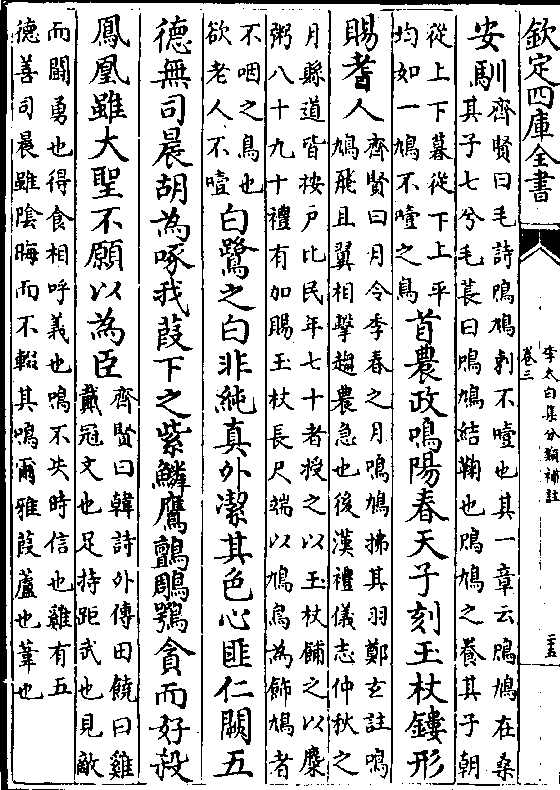 欽定四庫全書
李太白集分類補註
卷三
安馴
齊賢曰毛詩鳲鳩刺不噎也其一章云鳲鳩在桑
其子七兮毛萇曰鳲鳩結鞠也鳲鳩之養其子朝
從上下暮從下上平
均如一鳩不噎之鳥
首農政鳴陽春天子刻玉杖鏤形
賜耆人
齊賢曰月令季春之月鳴鳩拂其羽鄭玄註鳴
鳩飛且翼相擊趨農急也後漢禮儀志仲秋之
月縣道皆按户比民年七十者授之以玉杖餔之以糜
粥八十九十禮有加賜玉杖長尺端以鳩鳥為飾鳩者
不咽之鳥也
欲老人不噎
白鷺之白非純真外潔其色心匪仁闕五
德無司晨胡為啄我葭下之紫鱗鷹鸇鵰鶚貪而好殺
鳳凰雖大聖不願以為臣
齊賢曰韓詩外傳田饒曰雞
戴冠文也足持距武也見敵
而鬭勇也得食相呼義也鳴不失時信也雞有五
德善司晨雖陰晦而不輟其鳴爾雅葭蘆也葦也